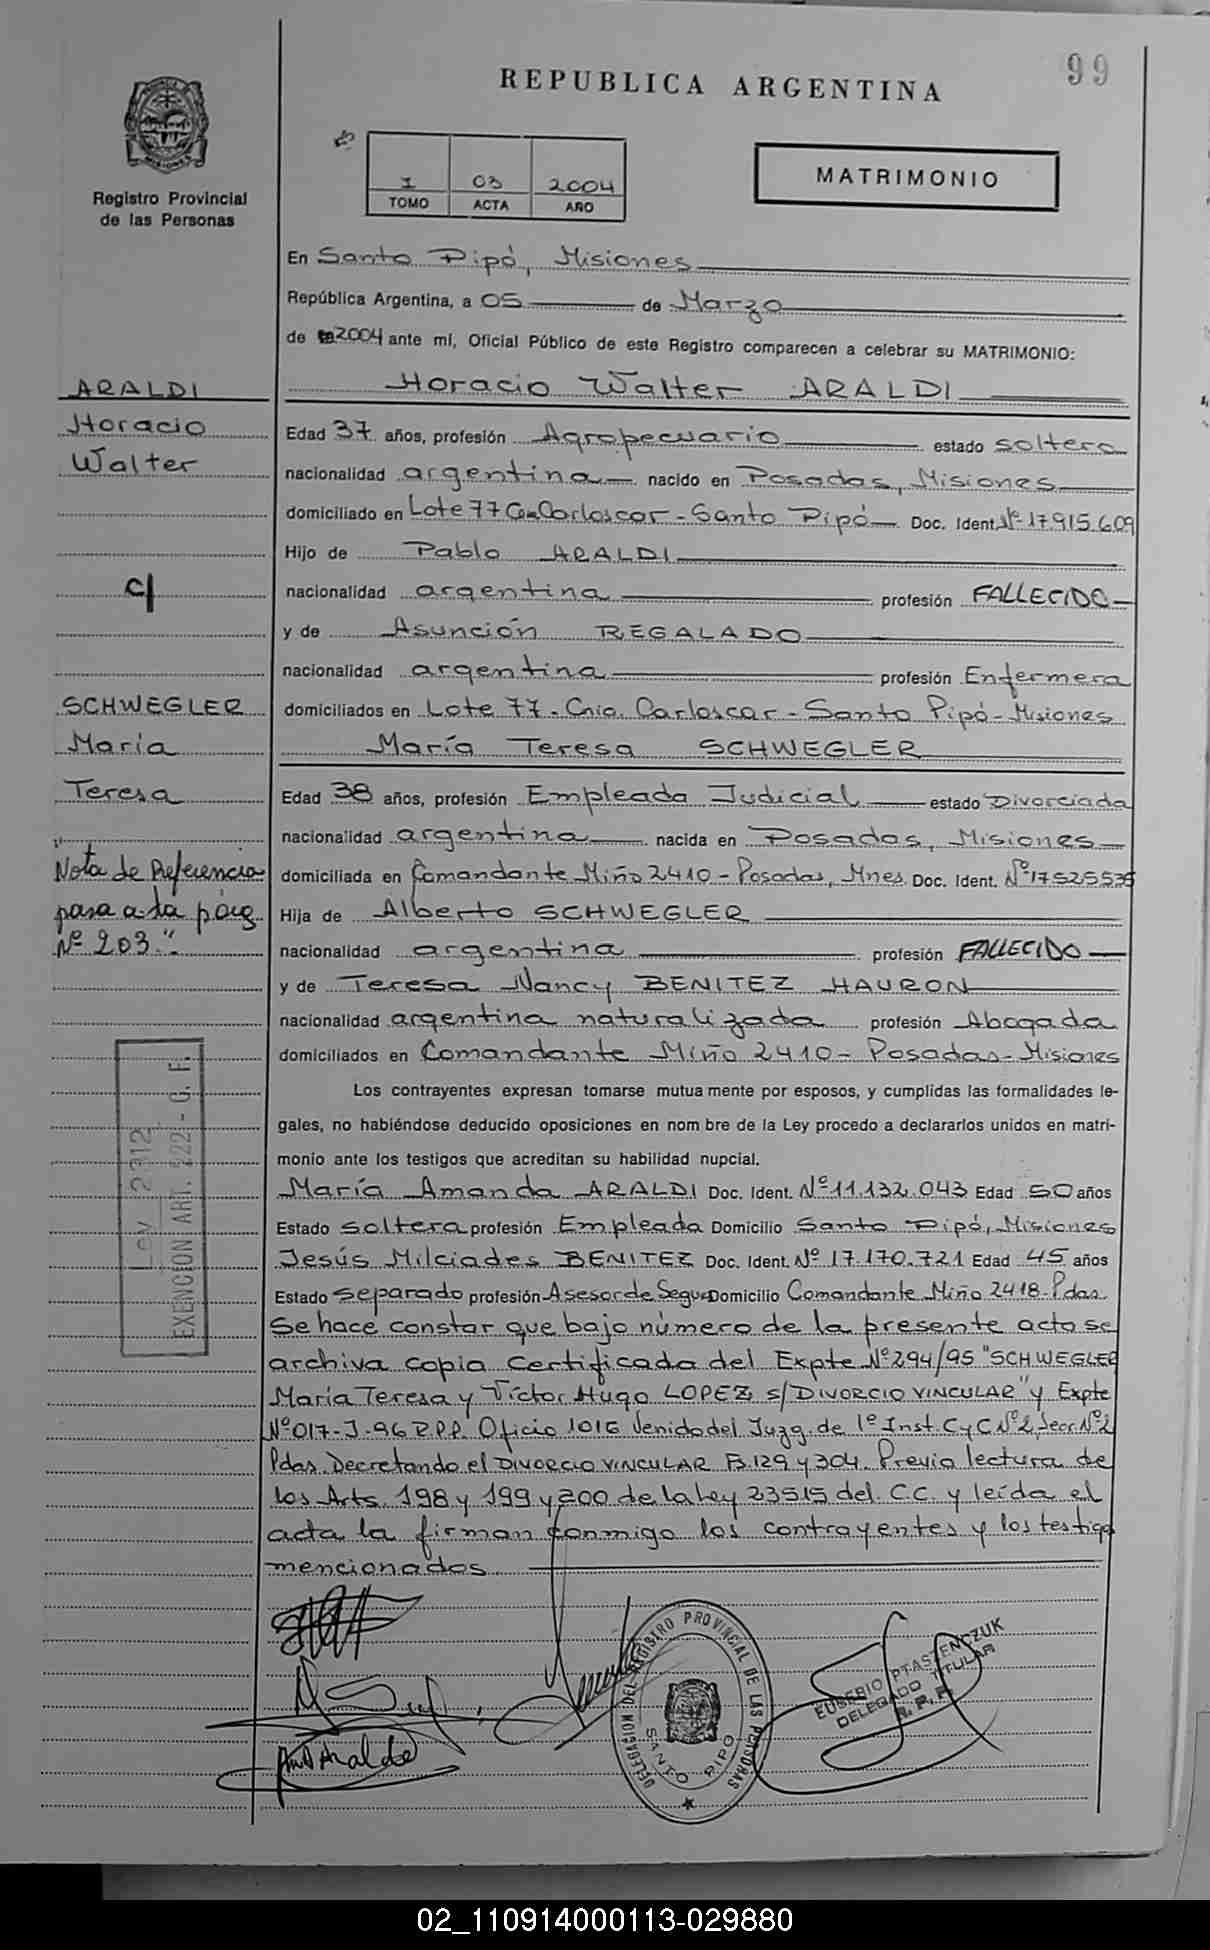 99
REPUBLICA ARGENTINA
MISIONES
Registro Provincial
de las Personas
1 03 2004
TOMO ACTA AÑO
MATRIMONIO
En Santo Pipó, Misiones
República Argentina, a 05 de Marzo
de 2004 ante mí, Oficial Público de este Registro comparecen a celebrar su MATRIMONIO:
Horacio Walter ARALDI
ARALDI
Horacio
Walter
c/
SCHWEGLER
María
Teresa
"
Nota de Referencia
pasa a la pág.
Nº 203."
Ley 2312
EXENCION ART. 222 - G. F.
Edad 37 años, profesión Agropecuario estado soltero
nacionalidad argentina nacido en Posadas, Misiones
domiciliado en Lote 77 Carloscor - Santo Pipó Doc. Ident. Nº 17.915.609
Hijo de Pablo ARALDI
nacionalidad argentina profesión FALLECIDO
y de Asunción REGALADO
nacionalidad argentina profesión Enfermera
domiciliados en Lote 77 - Cnia. Carloscor - Santo Pipó - Misiones
María Teresa SCHWEGLER
Edad 38 años, profesión Empleada Judicial estado Divorciada
nacionalidad argentina nacida en Posadas, Misiones
domiciliada en Comandante Miño 2410 - Posadas, Mnes. Doc. Ident. Nº 17525535
Hija de Alberto SCHWEGLER
nacionalidad argentina profesión FALLECIDO
y de Teresa Nancy BENITEZ HAURON
nacionalidad argentina naturalizada profesión Abogada
domiciliados en Comandante Miño 2410 - Posadas - Misiones
Los contrayentes expresan tomarse mutua mente por esposos, y cumplidas las formalidades le-
gales, no habiéndose deducido oposiciones en nom bre de la Ley procedo a declararlos unidos en matri-
monio ante los testigos que acreditan su habilidad nupcial.
María Amanda ARALDI Doc. Ident. Nº 11.132.043 Edad 50 años
Estado soltera profesión Empleada Domicilio Santo Pipó, Misiones
Jesús Milciades BENITEZ Doc. Ident. Nº 17.170.721 Edad 45 años
Estado separado profesión Asesor de Segu Domicilio Comandante Miño 2418 - Pdas.
Se hace constar que bajo número de la presente acto se
archiva copia certificada del Expte Nº 294/95 "SCHWEGLER
María Teresa y Víctor Hugo LOPEZ s/ DIVORCIO VINCULAR" y Expte
Nº 017-J-96 R.P.P. Oficio 1016 Venido del Juzg. de 1º Inst. C y C Nº 2, Secr. Nº 2
Pdas. Decretando el DIVORCIO VINCULAR Fs. 129 y 304. Previa lectura de
los Arts. 198 y 199 y 200 de la ley 23515 del C.C. y leída el
acta la firman conmigo los contrayentes y los testigos
mencionados
DELEGACION DEL REGISTRO PROVINCIAL DE LAS PERSONAS
SANTO PIPO
EUSEBIO PTASZENCZUK
DELEGADO TITULAR
R. P. P.
02_110914000113-029880